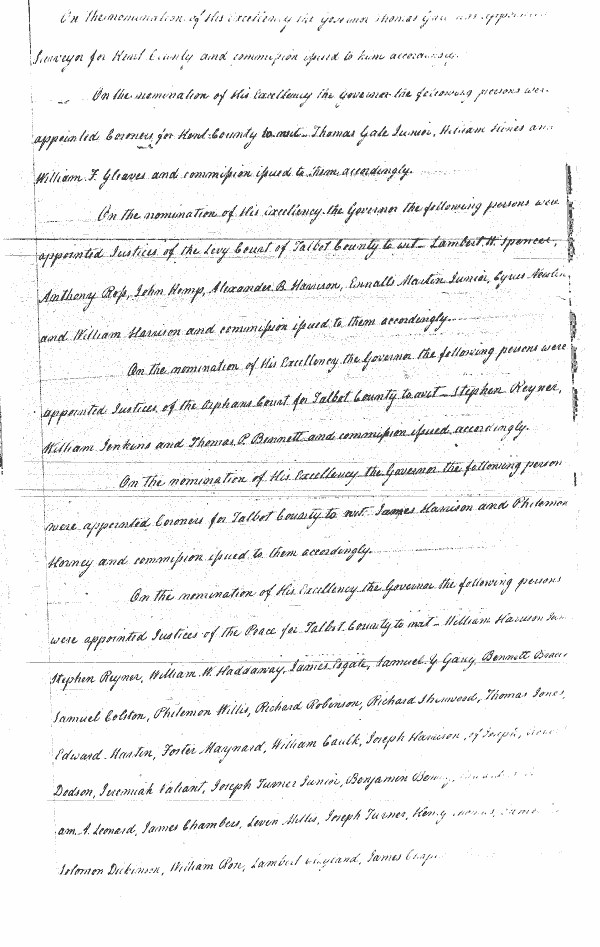 On the nomination of His Excellency the Governor Thomas Gale was appointed
Surveyor for Kent County and commission issued to him accordingly.
On the nomination of His Excellency the Governor the following persons were
appointed Coroners for Kent County to wit Thomas Gale Junior, and
William F. Gleaves and commission issued to them accordingly.
On the nomination of His Excellency the Governor the following persons were
appointed Justices of the Levy Court of Talbot County to wit Lambert W. Spencer,
Anthony Ross, John Kemp, Alexander B. Harrison, Ennalls Martin Junior, Cyrus
and William Harrison and commission issued to them accordingly.
On the nomination of His Excellency the Governor the following persons were
appointed Justices of the Orphans Court for Talbot County to wit Stephen Reyner,
William Jenkins and Thomas P. Bennett and commission issued accordingly.
On the nomination of His Excellency the Governor the following person
were appointed Coroners for Talbot County to wit James Harrison and Philemon
Horney and commission issued to them accordingly.
On the nomination of His Excellency the Governor the following persons
were appointed Justices of the Peace for Talbot County to wit William Harrison
Stephen Reyner, William W. Haddaway, James Esgate, Samuel G. Gary, Bennett
Samuel Colston, Philemon Willis, Richard Robinson, Richard Sherwood, Thomas Jones,
Edward Martin, Foster Maynard, William Caulk, Joseph Harrison of Joseph,
Dodson, Jeremiah Valiant, Joseph Turner Junior, Benjamin
am A. Leonard, James Chambers, Leven Millis, Joseph Turner, Henry
Solomon Dickinson, William Rose, Lambert James